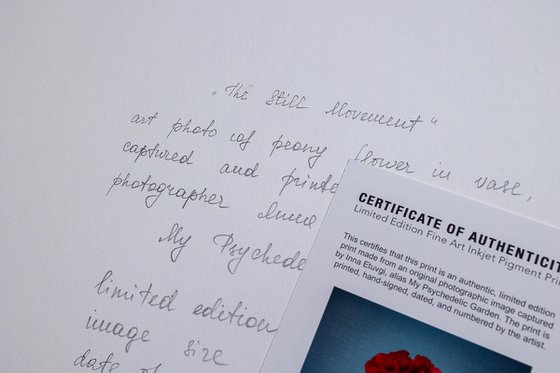 „The Still Movement"
art photo of peony flower in vase,
captured and printe
photographer Inna
My Psychede
limited edition
image size
date of
CERTIFICATE OF AUTHENTICIT
Limited Edition Fine Art Inkjet Pigment Prin
This certifies that this print is an authentic, limited edition
print made from an original photographic image captured
by Inna Etuvgi, alias My Psychedelic Garden. The print is
printed, hand-signed, dated, and numbered by the artist.